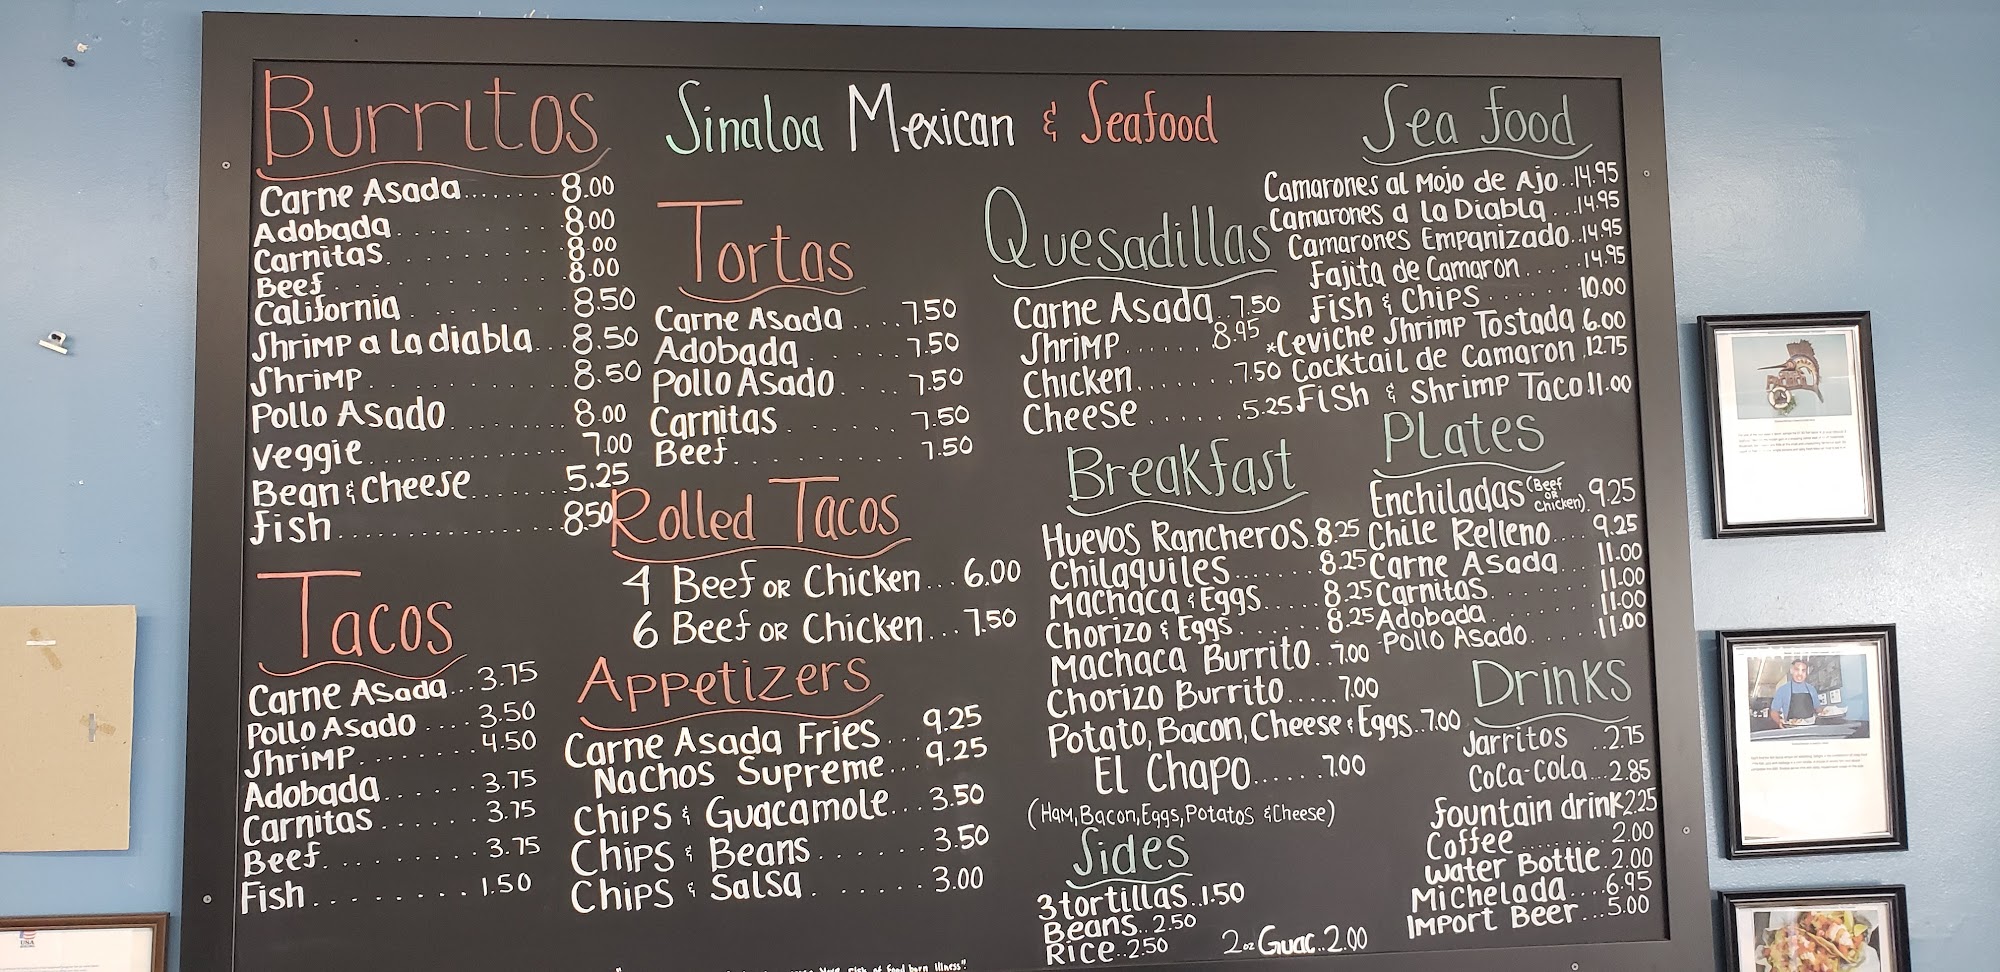 Sinaloa Mexican & Seafood
Burritos
Carne Asada.......8.00
Adobada..........8.00
Carnitas.........8.00
Beef............8.00
California.........8.50
Shrimp a La diabla...8.50
Shrimp..........8.50
Pollo Asado........8.00
Veggie..........7.00
Bean & Cheese.......5.25
Fish..............8.50
Tacos
Carne Asada...3.75
Pollo Asado....3.50
Shrimp.......4.50
Adobada......3.75
Carnitas......3.75
Beef.........3.75
Fish........1.50
Tortas
Carne Asada....7.50
Adobada......7.50
Pollo Asado....7.50
Carnitas......7.50
Beef........7.50
Rolled Tacos
4 Beef or Chicken...6.00
6 Beef or Chicken...7.50
Appetizers
Carne Asada Fries...9.25
Nachos Supreme...9.25
Chips & Guacamole...3.50
Chips & Beans......3.50
Chips & Salsa......3.00
Quesadillas
Carne Asada..7.50
Shrimp......8.95
Chicken.......7.50
Cheese......5.25
Breakfast
Huevos Rancheros.8.25
Chilaquiles......8.25
Machaca & Eggs.....8.25
Chorizo & Eggs......8.25
Machaca Burrito..7.00
Chorizo Burrito.....7.00
Potato, Bacon, Cheese & Eggs..7.00
El Chapo......7.00
(Ham, Bacon, Eggs, Potatos & Cheese)
Sides
3 tortillas..1.50
Beans..2.50
Rice..2.50
2oz Guac..2.00
Sea food
Camarones al Mojo de Ajo..14.95
Camarones a La Diabla...14.95
Camarones Empanizado..14.95
Fajita de Camaron.....14.95
Fish & Chips.......10.00
*Ceviche Shrimp Tostada 6.00
Cocktail de Camaron.12.75
Fish & Shrimp Taco.11.00
Plates
Enchiladas (Beef or Chicken).9.25
Chile Relleno....9.25
Carne Asada...11.00
Carnitas.......11.00
Adobada.......11.00
Pollo Asado......11.00
Drinks
Jarritos..2.75
Coca-Cola...2.85
Fountain drink 2.25
Coffee.......2.00
Water Bottle.2.00
Michelada....6.95
Import Beer...5.00
risk of food born illness".
USA